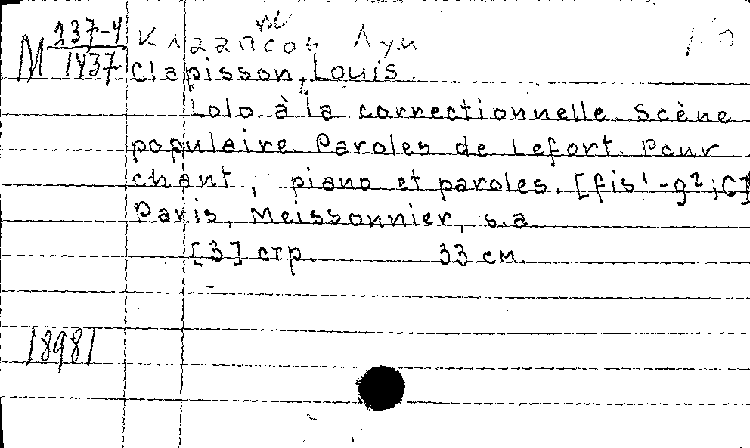 М 237-4/1437
Клаписсон Луи
Clapisson, Louis.
Lolo à la correctionnelle. Scène
populaire. Paroles de Lefort. Pour
chant, piano et paroles. [fis¹-g²; C]
Paris, Meissonnier, s.a.
[3] стр. 33 см.
18981